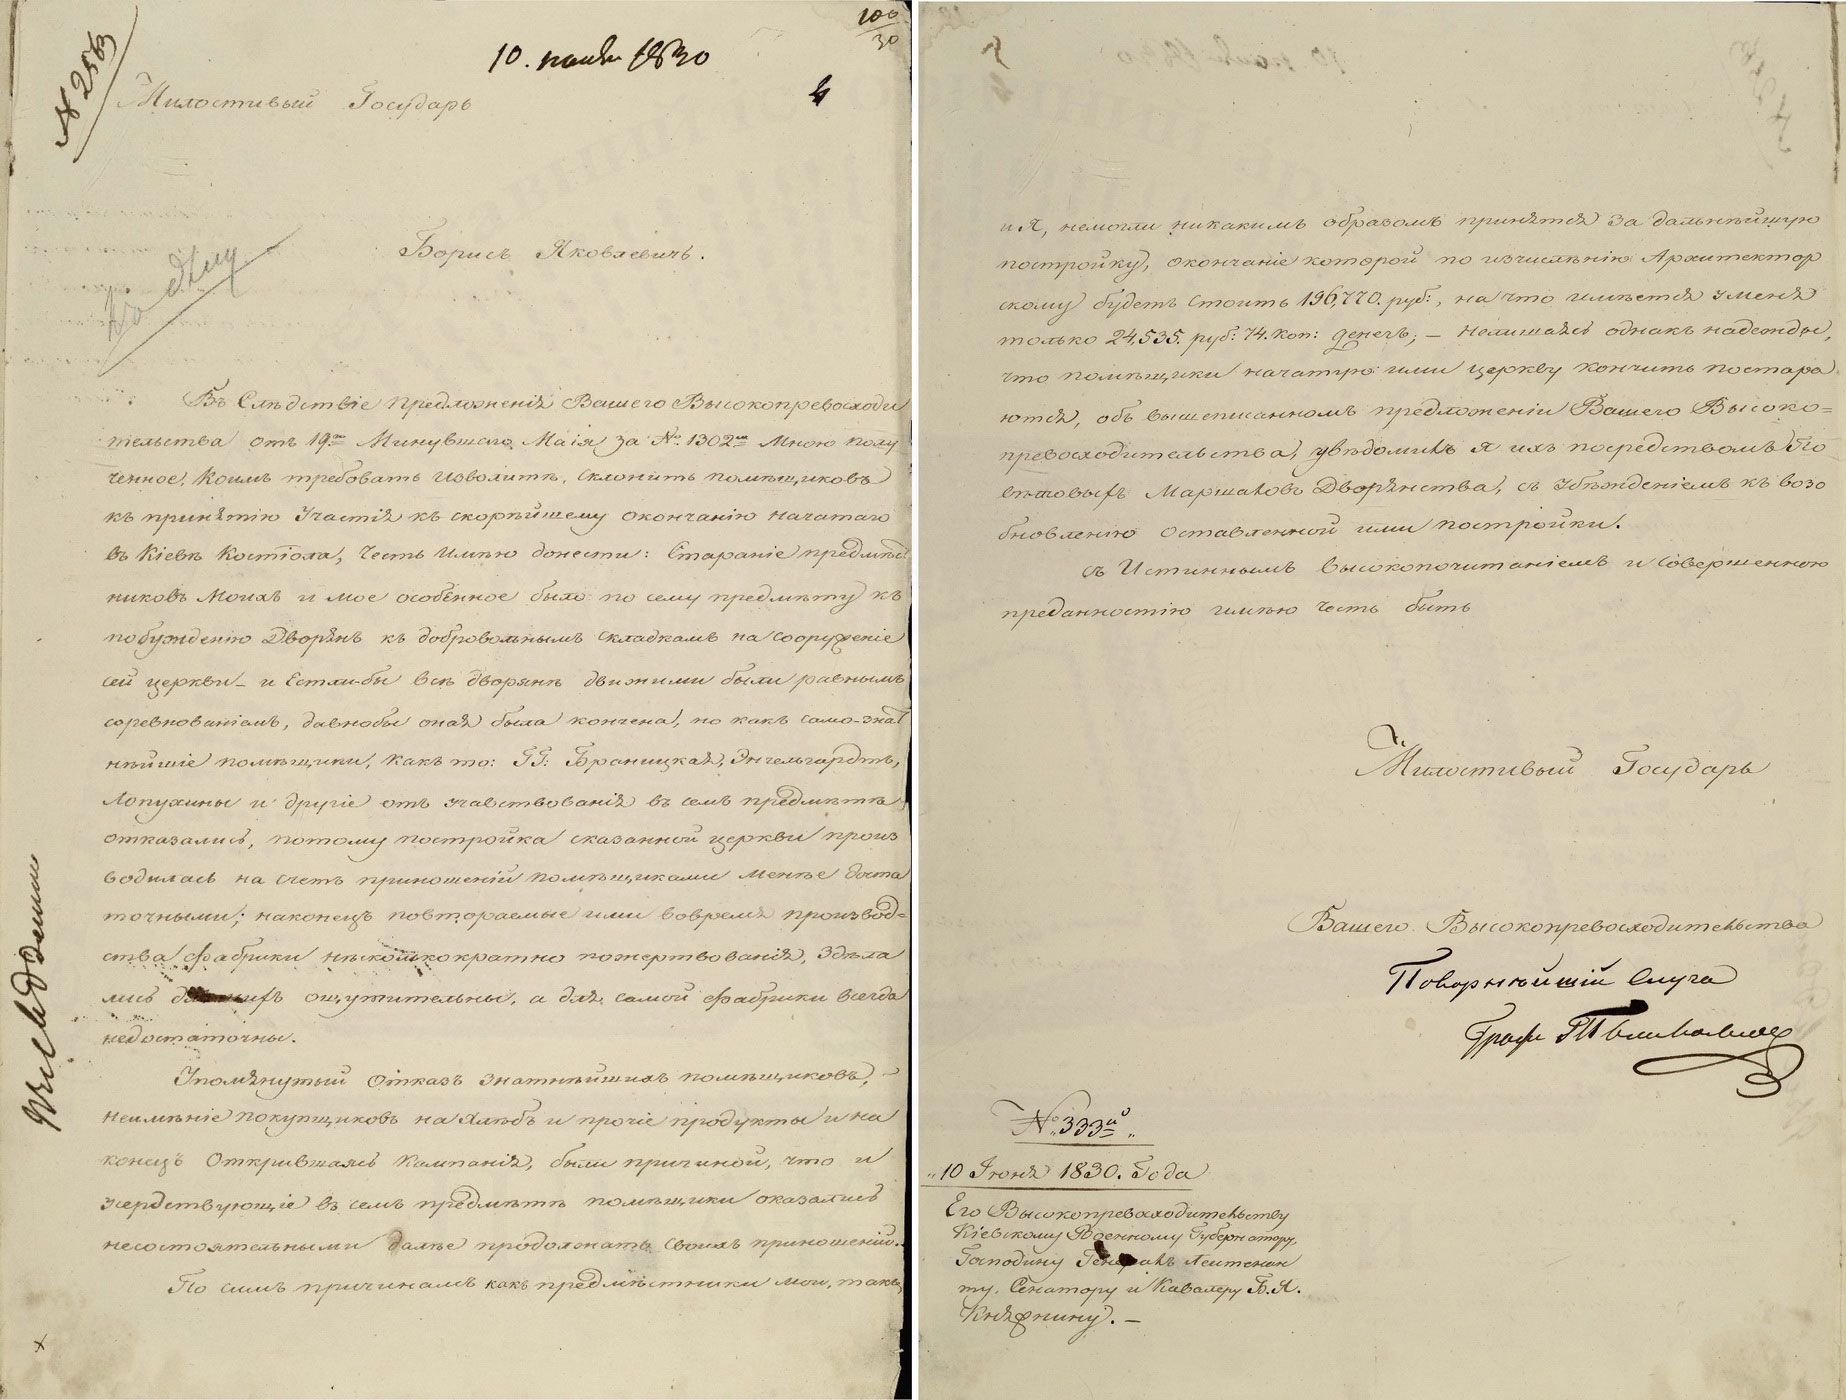 100
30
10. июня 1830
4
№ 2563
Милостивый Государь
Борисъ Яковлевичъ.
Къ делу
Въ Слѣдствіе предложенія Вашего Высокопревосходи
тельства отъ 19го Минувшаго Маія за № 1302мъ Мною полу
ченное, Коимъ требовать изволите, склонить помѣщиковъ
къ принятію Участія къ скорѣйшему окончанію начатаго
въ Кіевѣ Костіола, Честь Имѣю донести: Стараніе предмѣст
никовъ Моихъ и мое особенное было по сему предмѣту къ
побужденію Дворянъ къ добровольнымъ складкамъ на сооруженіе
сей церкви – и Естли-бы всѣ дворянѣ движими были равнымъ
соревнованіемъ, давнобы оная была кончена, но какъ само-знат
нѣйшіе помѣщики, какъ то: ГГ: Браницкая, Энгельгардтъ,
Лопухины и другіе отъ учавствованія въ семъ предмѣтѣ
отказались, потому постройка сказанной церкви произ
водилась на счетъ приношеній помѣщиками менѣе доста
точными; наконецъ повтораемые ими вовремя производ=
ства фабрики нѣсколькократно пожертвованія, здѣла
лись ощутительны, а для самой фабрики всегда
недостаточны.
Упомянутый Отказъ знатнѣйшихъ помѣщиковъ, –
неимѣніе покупщиковъ на хлѣбъ и прочіе продукты и на
конецъ Открившаясь Кампанія, были причиной, что и
усердствующіе въ семъ предмѣтѣ помѣщики оказались
несостоятельными далѣе продолжать своихъ приношеній. –
По симъ причинамъ какъ предмѣстники мои, такъ
и Я, немогли никакимъ образомъ принятся за дальнѣйшую
постройку, окончаніе которой по изчислѣнію Архитектор
скому будетъ стоить 196,770. руб:, на что имѣется Уменя
только 24,535. руб: 74. коп: денегъ; – Нелишаясь однакъ надежды,
что помѣщики начатую ими церкву кончить постара
ются, объ вышеписанномъ предложеніи Вашего Высоко=
превосходительства, увѣдомилъ я ихъ посредствомъ По
вѣтовыхъ Маршаловъ Дворянства, съ Убѣжденіемъ къ возо
бновленію Оставленной ими постройки.
съ Истиннымъ высокопочитаніемъ и совершенною
преданностію имѣю Честь быть
Милостивый Государь
Вашего Высокопревосходительства
Покорнѣйшій Слуга
Графъ
№ „333й„
„10 Іюня 1830. Года
Его Высокопревосходительству
Кіевскому Военному Губернатору,
Господину Генералъ Леитенан
ту, Сенатору и Кавалеру Б. Я.
Княжнину. –